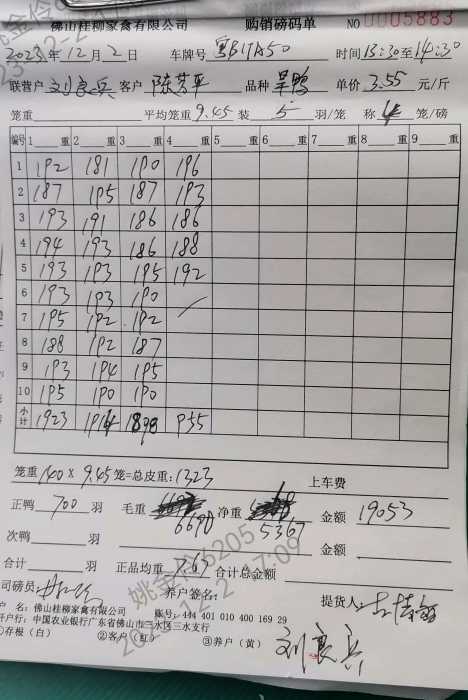 佛山桂柳家禽有限公司 购销磅码单 NO 0005883
2023年12月2日 车牌号 粤B17A50 时间13:30至14:30
联营户 刘良兵 客户 陈芳平 品种 旱鸭 单价 3.55 元/斤
笼重 平均笼重 9.45 装 5 羽/笼 称 4 笼/磅
编号 1 重 2 重 3 重 4 重 5 重 6 重 7 重 8 重 9 重
1 192 181 190 196
2 187 195 187 193
3 193 191 186 186
4 194 193 186 188
5 193 193 195 192
6 193 193 190
7 195 192 192
8 188 192 187
9 193 194 195
10 195 190 190
小计 1923 1914 1898 955
笼重 140 X 9.45 笼=总皮重: 1323 上车费
正鸭 700 羽 毛重 6690 净重 5367 金额 19053
次鸭 羽 金额
合计 羽 正品均重 7.67 合计总金额
司磅员: 养户签名: 提货人:
户 名: 佛山桂柳家禽有限公司 账号: 444 401 010 400 169 29
开户行: 中国农业银行广东省佛山市三水区三水支行
①存根(白) ②客户(红) ③养户(黄) 刘良兵
姚金伶6205
2023-12-2 17:09